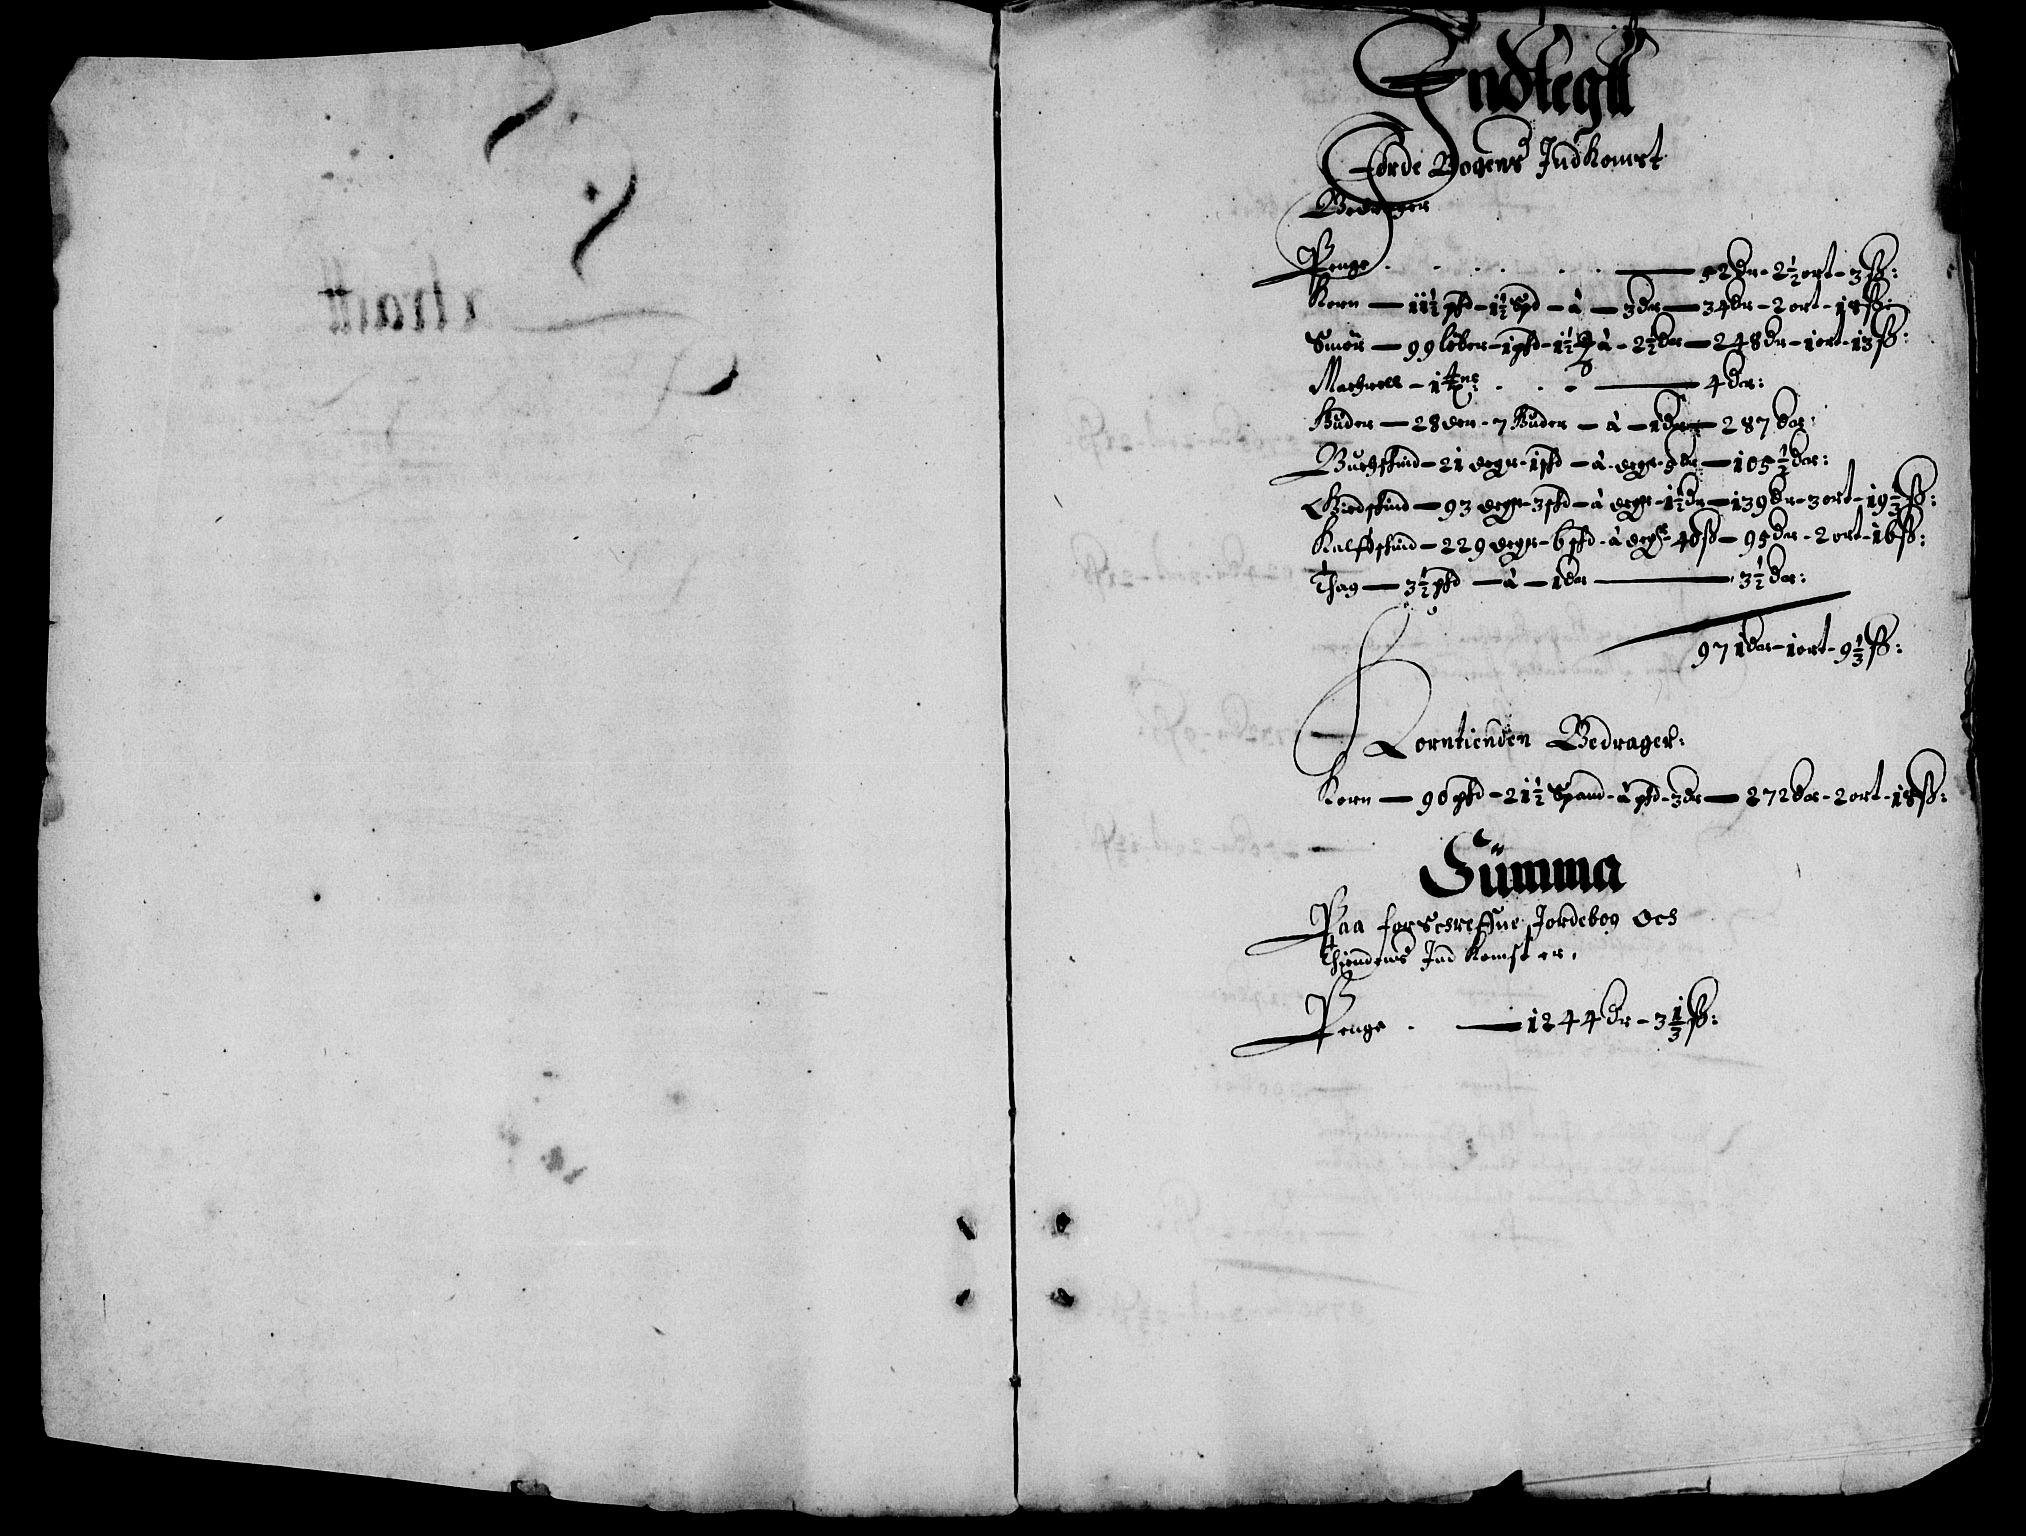 Indtegtt
Jorde Bogens Indkomst
Bedrager
Penge . . . . . — 52 dr - 2½ ort - 3 ß:
Korn — 11½ pfd - 1½ Spd - à — 3 dr — 34 dr - 2 ort - 18 ß:
Smör — 99 löber - 1 pfd - 1½ à - 2½ dr — 248 dr - 1 ort - 13 ß:
Machrell - 1 tne . . . — 4 dr:
Huder — 28 der - 7 Huder — à — 1 dr — 287 dr:
Buchskind — 21 degr - 1 skd — à degr - 5 dr — 105½ dr:
Giedskind — 93 degr - 3 skd — à degr - 1½ dr — 139 dr - 3 ort - 19⅓ ß:
Kalfskind — 229 degr - 6 skd - à degr - 40 ß — 95 dr - 2 ort - 16 ß:
Thag — 3½ pfd — à — 1 dr — 3½ dr:
971 dr - 1 ort - 9⅓ ß:
Korntienden Bedrager:
Korn — 90 pfd - 21½ Spand - à pfd - 3 dr — 272 dr - 2 ort - 18 ß:
Summa
Paa forschreffne Jordebog Och
Thiendens Ind Komst er,
Penge . — 1244 dr - 3⅓ ß: